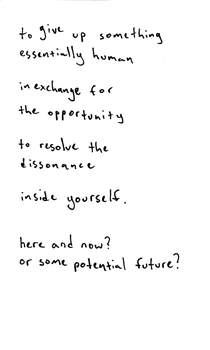 to give up something
essentially human
in exchange for
the opportunity
to resolve the
dissonance
inside yourself.
here and now?
or some potential future?